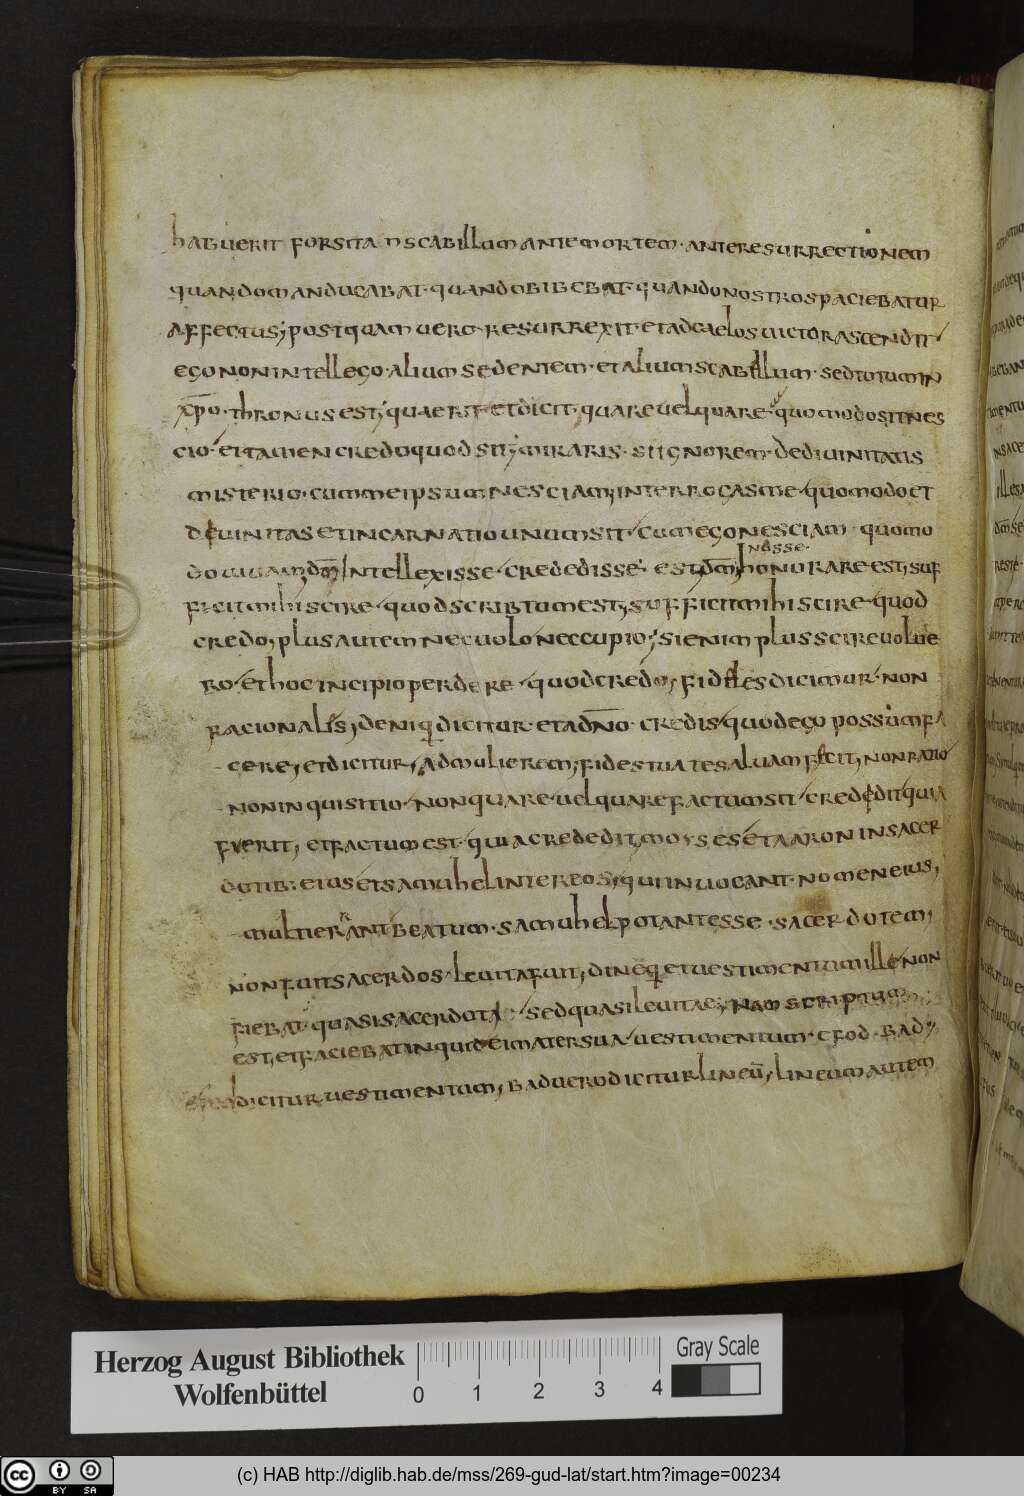 habuerit forsitan scabillum ante mortem · ante resurrectionem
quando manducabat · quando bibebat · quando nostros paciebatur
affectus; postquam uero resurrexit · et ad caelos uictor ascendit
ego non intellego · alium sedentem · et alium scabillum · sed totum in
xp̄o · thronus est; quaerit et dicit · quare uel quare · quomodo sit nes
cio · et tamen credo quod sit; miraris · si ignorem · de diuinitatis
misterio · cum me ipsum nesciam; interrogas me · quomodo et
deuinitas et incarnatio unum sit · cum ego nesciam · quomo
nosse
do uiuam dm̄ intellexisse · crededisse · est dm̄ honorare est; suf
ficit mihi scire · quod scribtum est; sufficit mihi scire · quod
credo; plus autem nec uolo nec cupio; si enim plus scire uolue
ro · et hoc incipio perdere · quod credo; fidelis dicimur · non
racionalis; deniq; dicitur · et ad dn̄o · credis · quod ego possum fa
cere; et dicitur; ad mulierem; fides tua te saluam fecit; non ratio
non inquisitio · non quare · uel quare factum sit · credidit quia
fuerit; et factum est · quia crededit; moyses et aaron in sacer
dotib: eius et samuhel inter eos; qui inuocant · nomen eius;
multi errant beatum · samuhel potant esse · sacerdotem;
non fuit sacerdos · leuita fuit; diniq; et uestimentum ille non
fiebat · quasi sacerdotale · sed quasi leuitae; nam scriptum
est, et faciebat inquid ei mater sua · uestimentum · efod · bad;
efod dicitur uestimentum; bad uero dicitur lineū; lineum autem
Herzog August Bibliothek
Wolfenbüttel
0 1 2 3 4
Gray Scale
cc BY SA
(c) HAB http://diglib.hab.de/mss/269-gud-lat/start.htm?image=00234